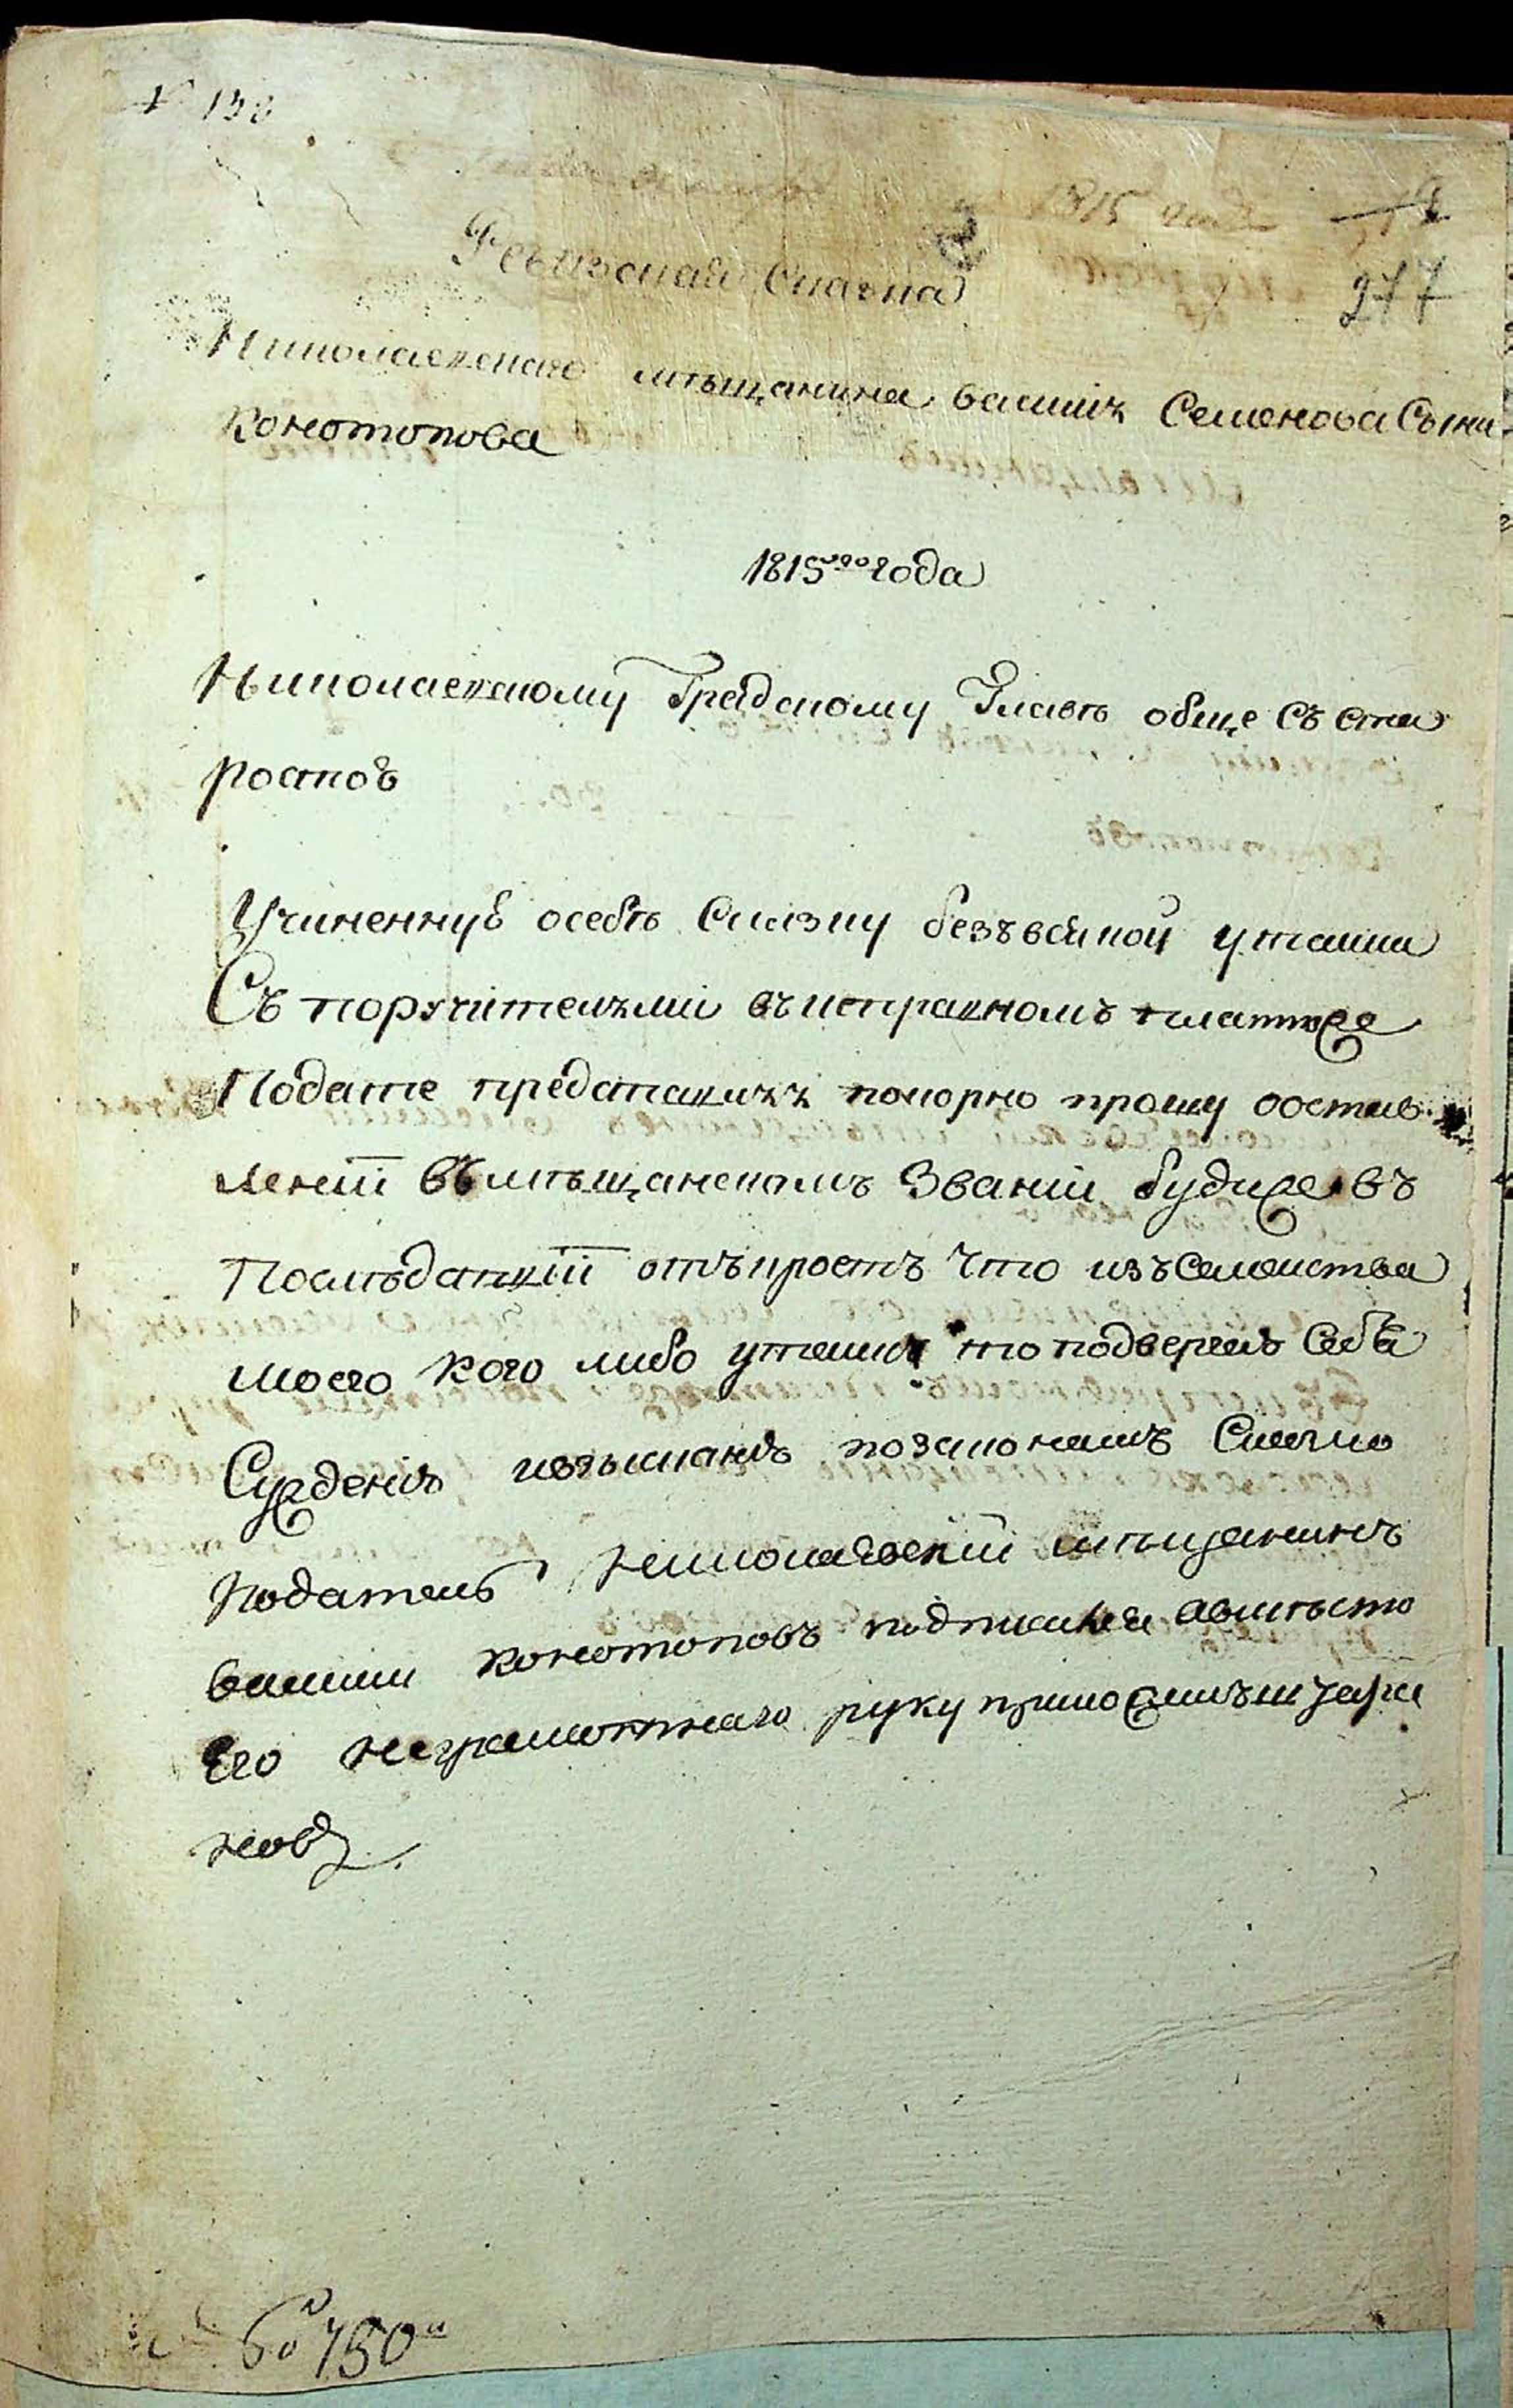 № 138
1815 года
277
Ревизская Сказка
Николаевскаго мѣщанина василiя Семенова Сына
Конотопова
1815го года
Николаевскому Градскому Главѣ обще Съ ста
ростою
Учиненную осебѣ Сказку безъвсякой утайки
Съ поручительми въисправномъ платеже
Податей представляя покорно прошу оостав
ленiи въмѣщанскомъ Званiи будиже въ
Послѣдствiи отъкроетъ Что изъСемейства
моего кого либо утаилъ то подвергаю Себя
Сужденiю ивзысканiю позаконамъ Скаску
подателъ Николаевскiй мѣщанинъ
василий Конотоповъ подписался авмѣсто
Его неграмотнаго руку приложилъ
новъ